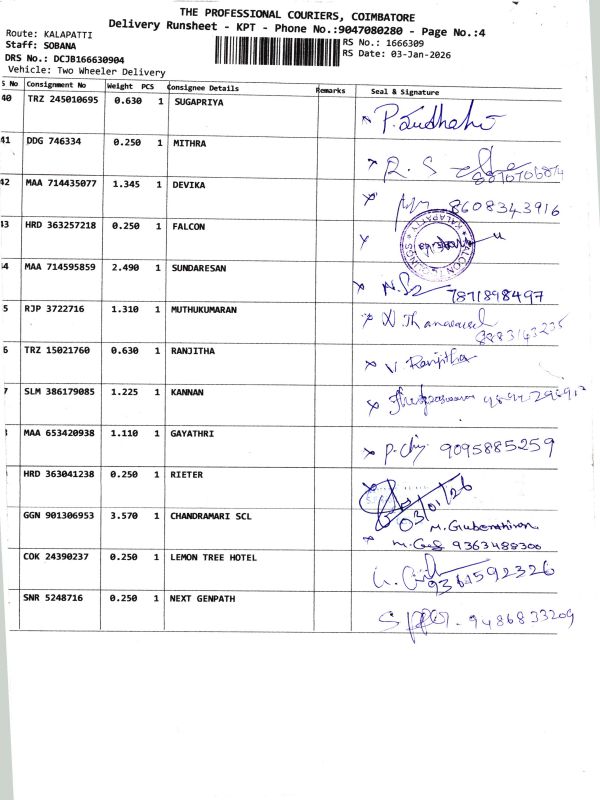 THE PROFESSIONAL COURIERS, COIMBATORE
Delivery Runsheet - KPT - Phone No.:9047080280 - Page No.:4
Route: KALAPATTI
Staff: SOBANA
DRS No.: DCJB166630904
Vehicle: Two Wheeler Delivery
RS No.: 1666309
RS Date: 03-Jan-2026
S No Consignment No Weight PCS Consignee Details Remarks Seal & Signature
40 TRZ 245010695 0.630 1 SUGAPRIYA
41 DDG 746334 0.250 1 MITHRA R. S
42 MAA 714435077 1.345 1 DEVIKA 8608343916
43 HRD 363257218 0.250 1 FALCON
44 MAA 714595859 2.490 1 SUNDARESAN 7871898497
5 RJP 3722716 1.310 1 MUTHUKUMARAN
6 TRZ 15021760 0.630 1 RANJITHA V Ranjitha
7 SLM 386179085 1.225 1 KANNAN
MAA 653420938 1.110 1 GAYATHRI 9095885259
HRD 363041238 0.250 1 RIETER 03/01/26
GGN 901306953 3.570 1 CHANDRAMARI SCL M. Gubenthiran
9363488300
COK 24390237 0.250 1 LEMON TREE HOTEL 9361592326
SNR 5248716 0.250 1 NEXT GENPATH 9486833209